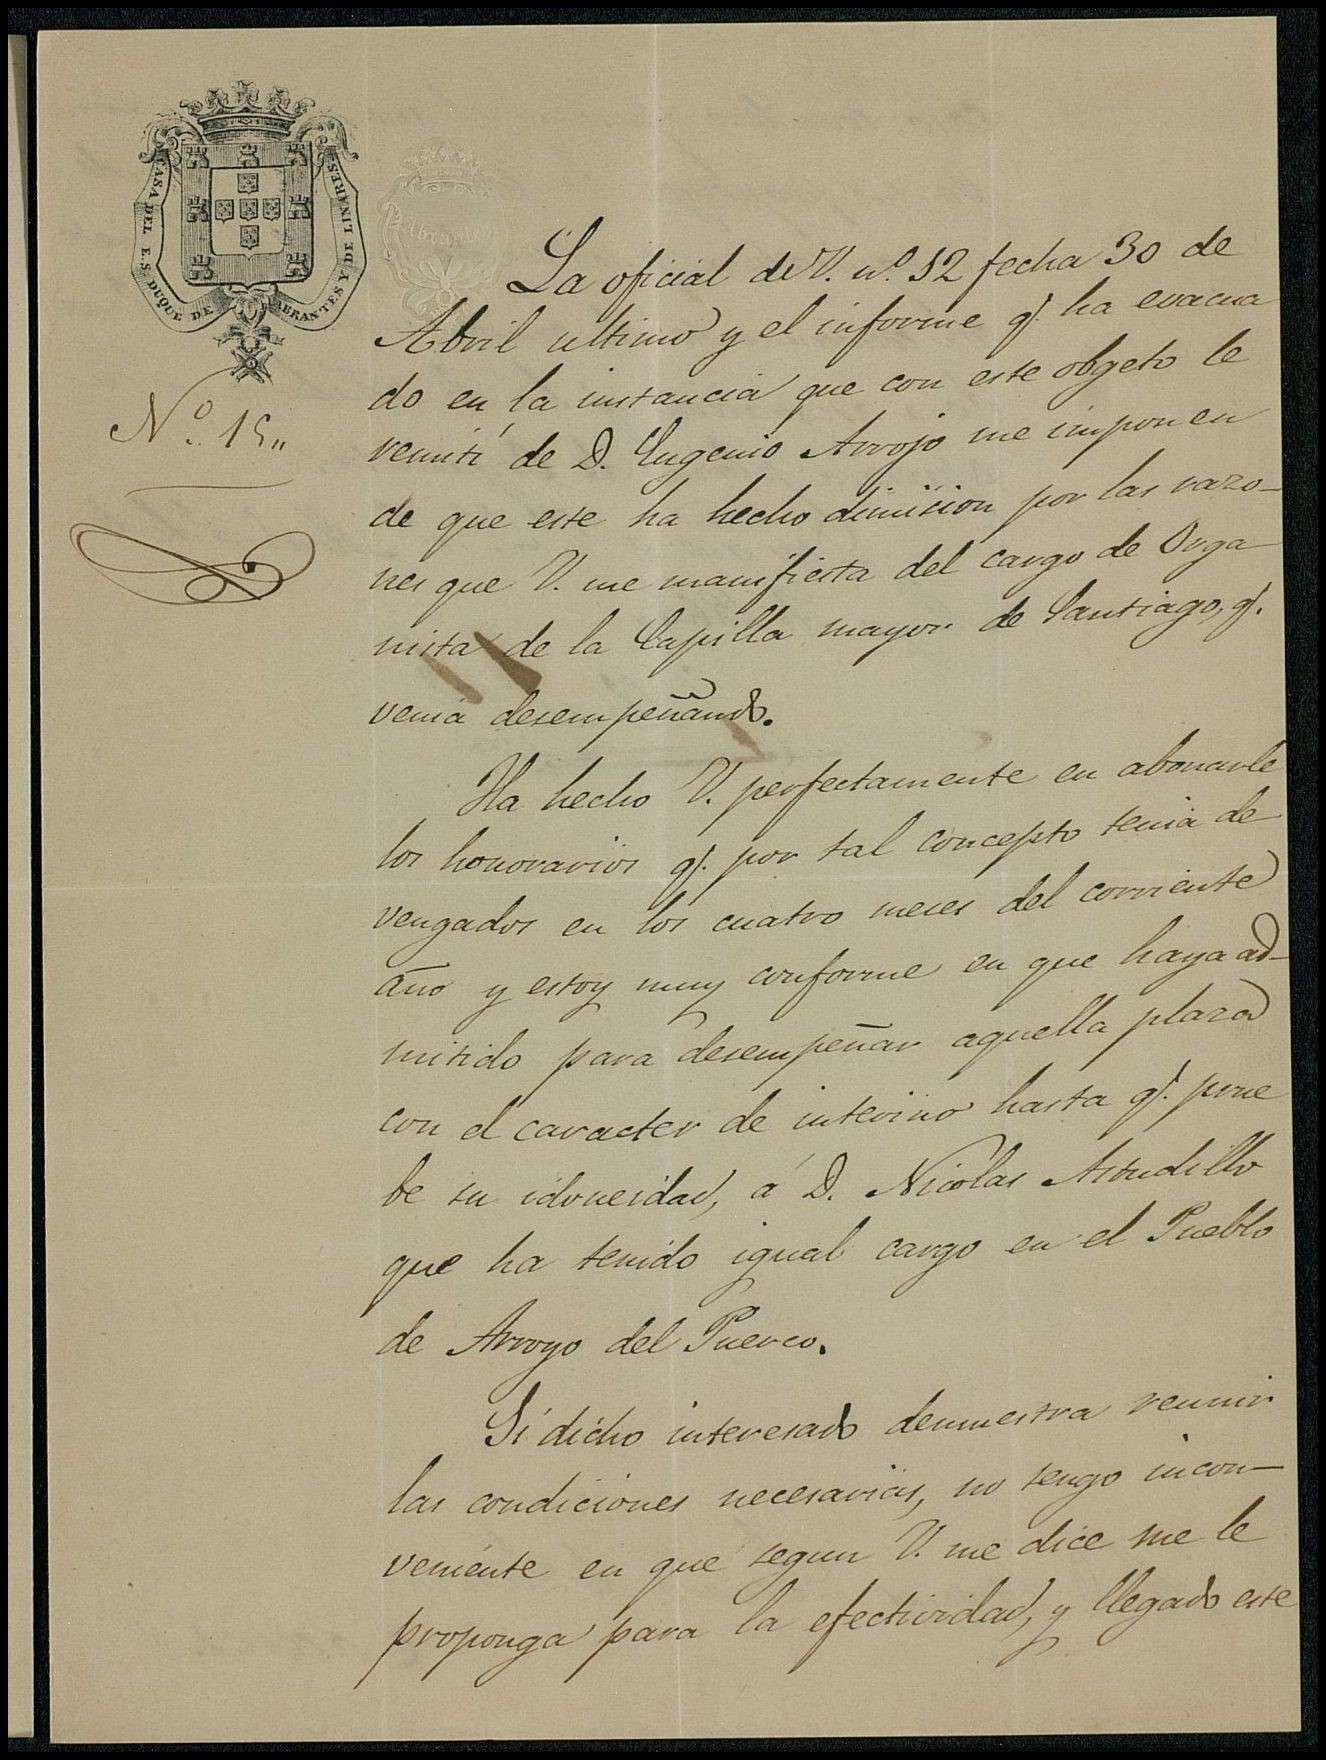 CASA DEL E. S. DUQUE DE ABRANTES Y DE LINARES.
Nº 15,,
La oficial de V. nº 12 fecha 30 de
Abril ultimo y el informe q. ha evacua
do en la instancia que con este obgeto le
remití de D. Eugenio Arrojo me imponen
de que este ha hecho dimision por las razo-
nes que V. me manifiesta del cargo de Orga
nista de la Capilla mayor de Santiago, q.
venia desempeñando.
Ha hecho V. perfectamente en abonarle
los honorarios q. por tal concepto tenia de
vengados en los cuatro meses del corriente
año y estoy muy conforme en que haya ad-
mitido para desempeñar aquella plaza
con el caracter de interino hasta q. prue
be su idoneidad, á D. Nicolas Astudillo
que ha tenido igual cargo en el Pueblo
de Arroyo del Puerco.
Si dicho interesado demuestra reunir
las condiciones necesarias, no tengo incon-
veniente en que segun V. me dice me le
proponga para la efectividad, y llegado este